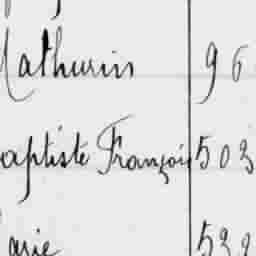 Mathurin 96
Baptiste François 503
Marie